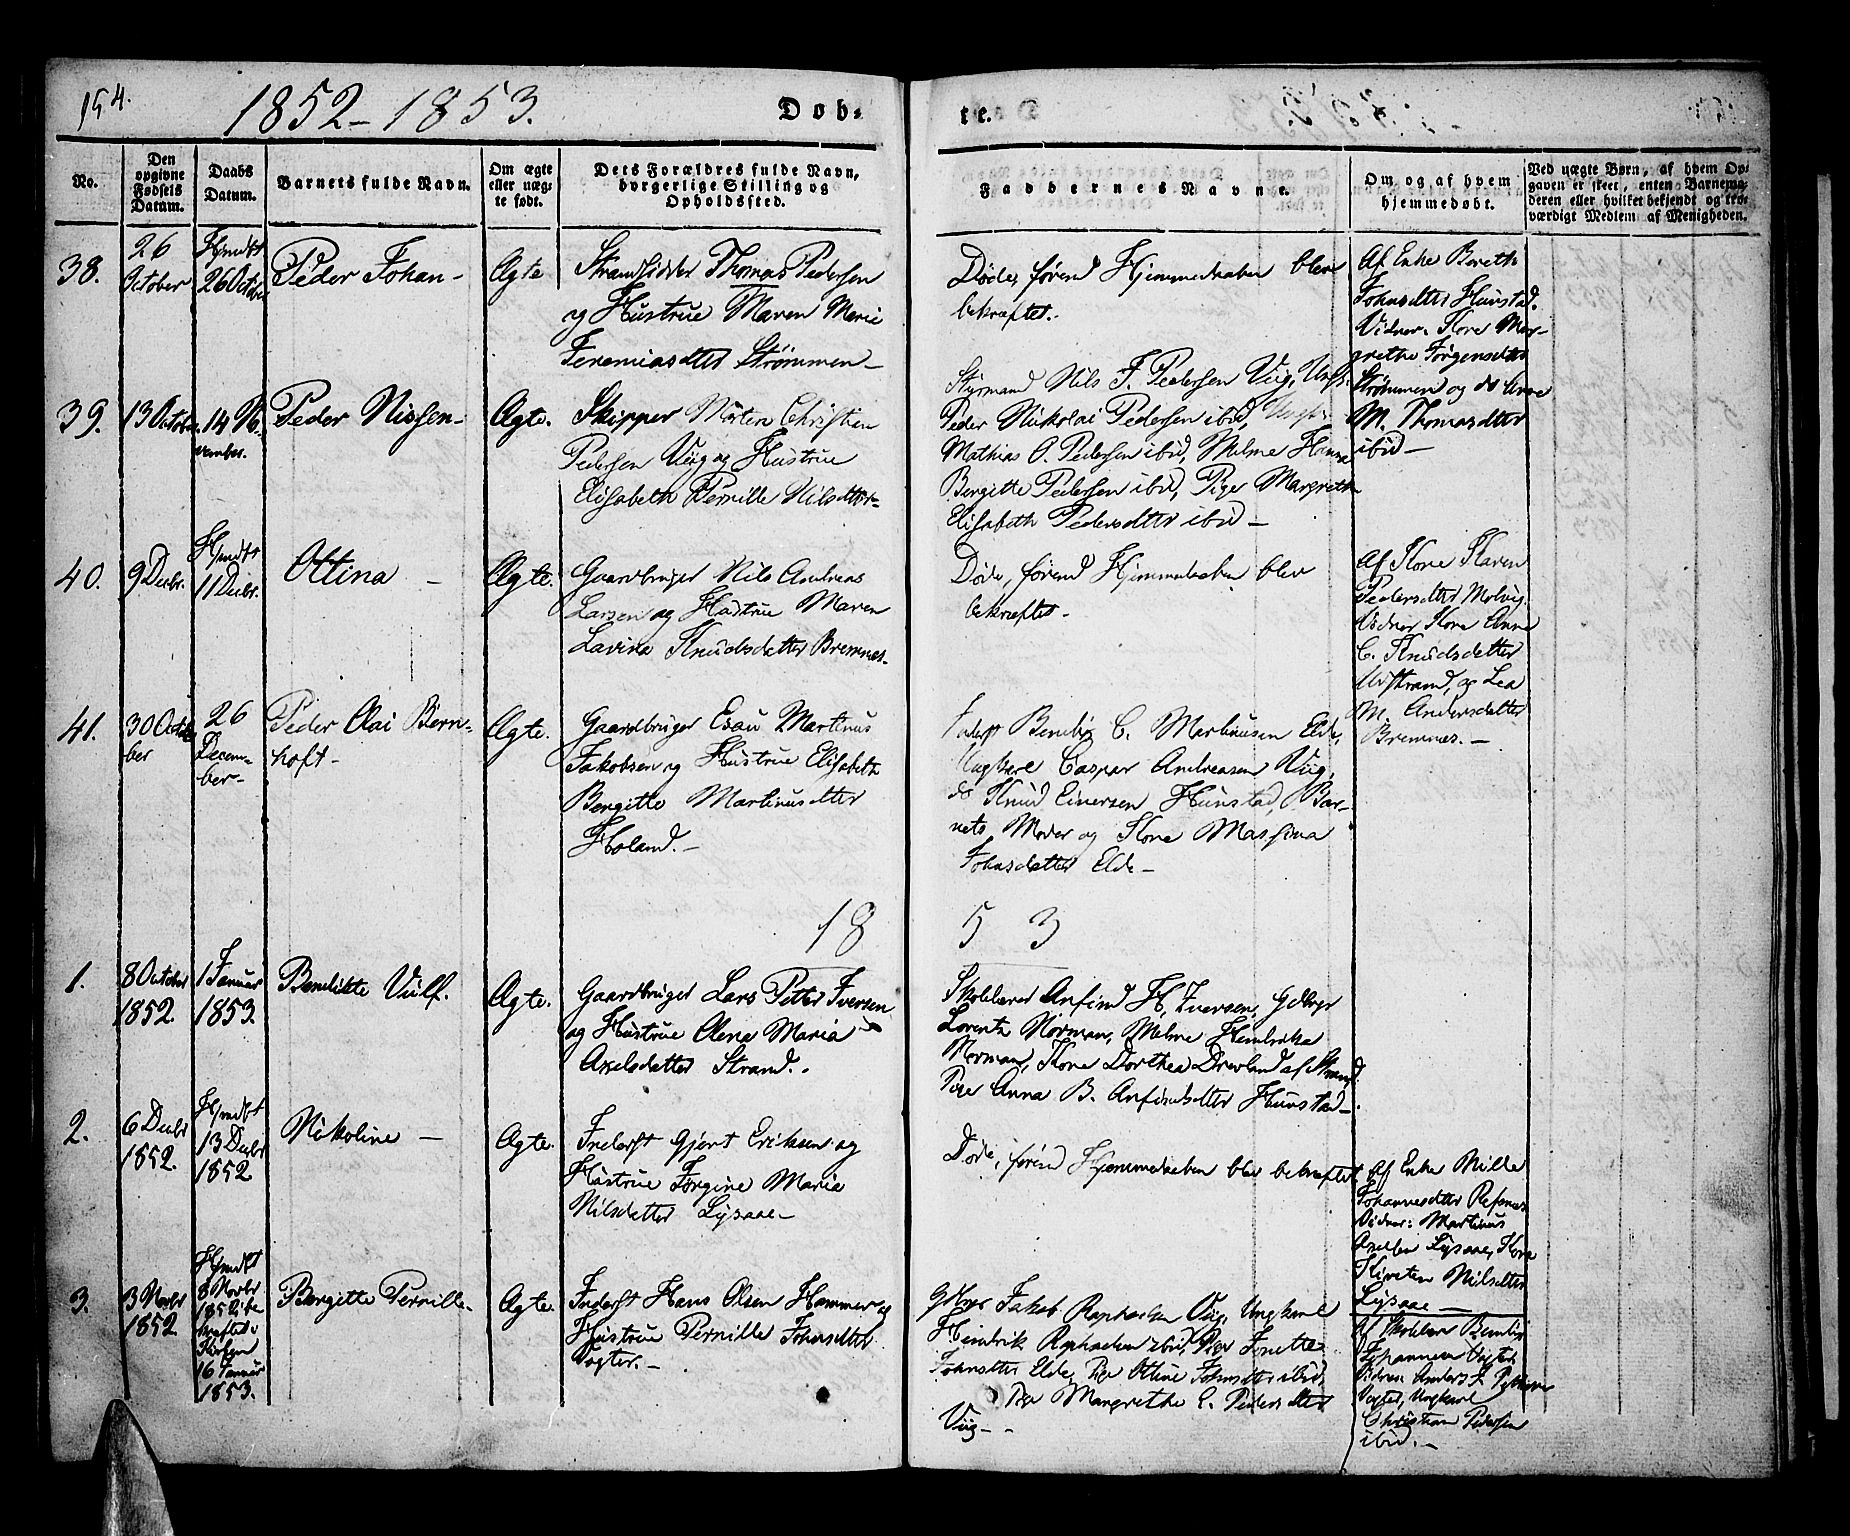 154.
1852-1853.
Døb-
te.
No.
Den
opgivne
Fødsels
Datum.
Daabs
Datum.
Barnets fulde Navn.
Om ægte
eller uæg-
te født.
Dets Forældres fulde Navn,
borgerlige Stilling og
Opholdssted.
Faddernes Navne.
Om og af hvem
hjemmedøbt.
Ved uægte Børn, af hvem Op-
gaven er skeet, enten Barnemo-
deren eller hvilket bekjendt og tro-
værdigt Medlem af Menigheden.
38.
26
October
Hjmdbt
26 October
Peder Johan-
Ægte
Strandsidder Thomas Pedersen
og Hustrue Maren Marie
Jeremiasdtter Strømmen-
Døde, førend Hjemmedaaben blev
bekræftet.
Af Enke Bereth
Johnsdtter Hunstad.
Vidner. Kone Mar-
grethe Jørgensdtter
Strømmen og do Anne
M. Thomasdtter
ibid-
39.
13 October
14 No-
vember.
Peder Nissen-
Ægte.
Skipper Morten Christian
Pedersen Viig og Hustrue
Elisabeth Pernille Nilsdtter-
Styrmand Nils J. Pedersen Viig, Ungk.
Peder Nikolai Pedersen ibid, Ungk.
Mathias O. Pedersen ibid, Melme Hanna
Bergitte Pedersen ibid, Pige Margreth
Elisabeth Pedersdtter ibid-
40.
9 Decbr.
Hjmdbt
11 Decbr.
Ottina -
Ægte.
Gaardbruger Nils Andreas
Larsen og Hustrue Maren
Lavina Knudsdatter Bremnes.
Døde, førend Hjemmedaaben blev
bekræftet.
Af Kone Karen
Pedersdtter Molvig
Vidner Kone Anne
C. Knudsdatter
og Lea
M. Andersdatter
Bremnes.-
41.
30 Octo
ber
26
Decem-
ber-
Peder Olai Bern-
hoft-
Ægte.
Gaardbruger Esau Martinus
Jakobsen og Hustrue Elisabeth
Bergitte Martinusdtter
Holand.-
Inderst C. Martinusen Elde,
Ungkarl Caspar Andreasen Viig,
do Knud Einersen Hunstad, Bar-
nets Moder og Kone Massina
Johnsdatter Elde-
18
5 3
1.
8 October
1852.
1 Januar
1853.
Bendikte Vulf.
Ægte.
Gaardbruger Lars Petter Iversen
og Hustrue Olena Maria
Axelsdatter Strand.
Skolelærer Anfind H. Iversen, Gdbrgr
Lorentz Norman, Melme Hendrika
Norman, Kone Dorthea Drevland af Strand.
Pige Anna B. Anfindsdtter Hunstad-
2.
6 Decbr
1852.
Hjmdbt
13 Decbr
1852
Nikoline -
Ægte.
Inderst Gjert Eriksen og
Hustrue Jørgine Maria
Nilsdatter Lysaae-
Døde, førend Hjemmedaaben blev bekræftet.
Af Enke Mille
Johannesdtter Refsnes
Vidner: Martinus
Axelsen Lysaae, Kone
Kirsten Nilsdtter
Lysaae-
3.
3 Novbr
1852
Hjmdbt
8 Novbr
1852 be
kræftet i
Kirken
16 Januar
1853.
Bergitte Pernille-
Ægte.
Inderst Hans Olsen Hammer og
Hustrue Pernille Johnsdtter
Vogter.-
Gdbrgr Jakob Raphaelsen Viig, Ungkarl
Hendrik Raphaelsen ibid, Pige Jonette
Johnsdtter Elde, Pige Ottine Johnsdtter ibid,
Pige Margrethe E. Pedersdtter
Viig-
Af Skolelærer
Johannesen Vogter
Vidner: Anders
Vogter, Ungkarl
Christian Pedersen
ibid.-